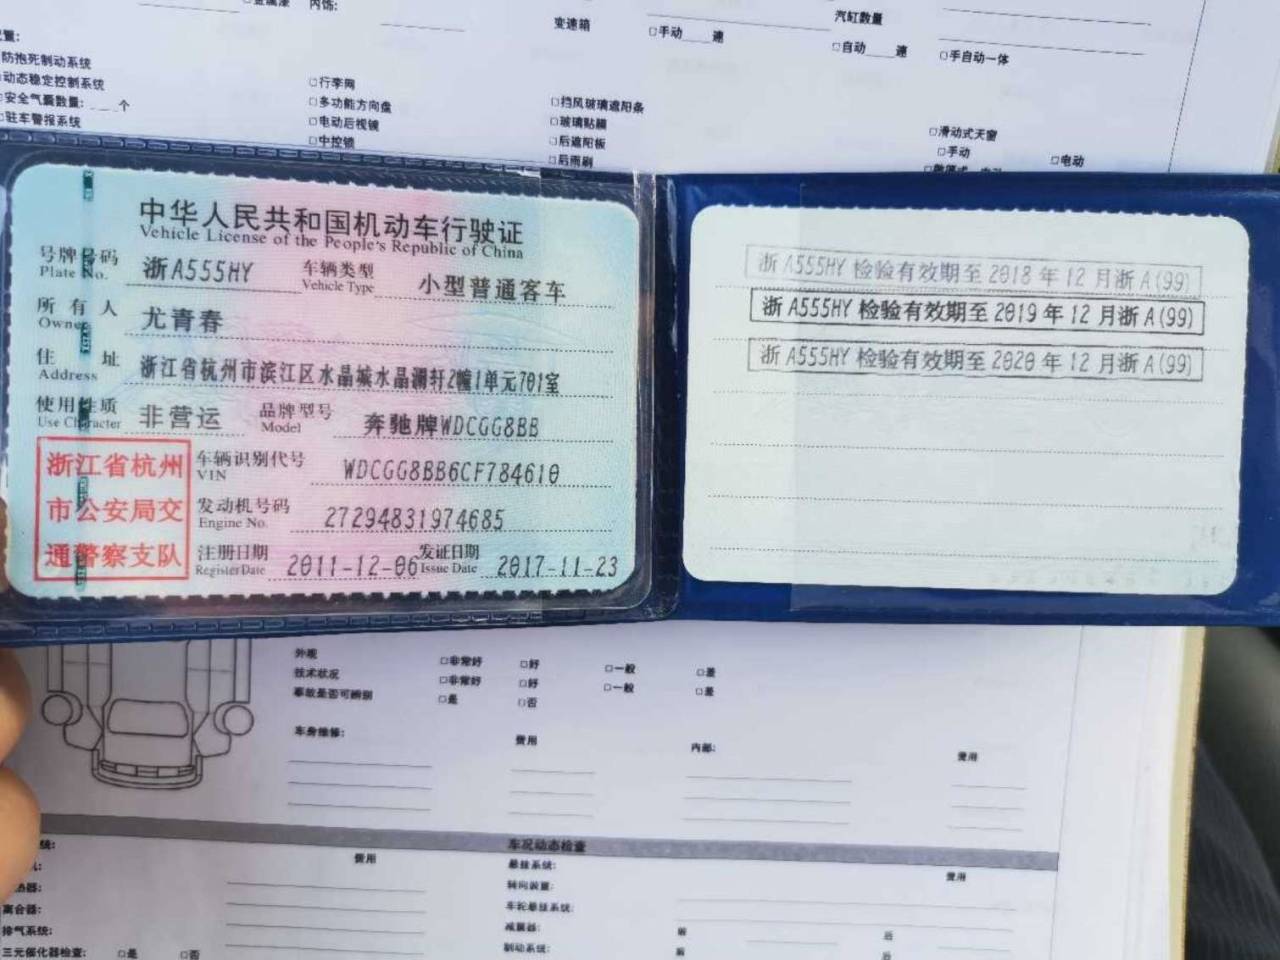 内饰:
变速箱
□手动____速
汽缸数量
□自动____速
□手自动一体
防抱死制动系统
动态稳定控制系统
□安全气囊数量:____个
□驻车警报系统
□行李网
□多功能方向盘
□电动后视镜
□中控锁
□挡风玻璃遮阳条
□玻璃贴膜
□后遮阳板
□后雨刷
□滑动式天窗
□手动
□电动
中华人民共和国机动车行驶证
Vehicle License of the People's Republic of China
号牌号码 浙A555HY 车辆类型 小型普通客车
Plate No. Vehicle Type
所有人 尤青春
Owner
住址 浙江省杭州市滨江区水晶城水晶澜轩2幢1单元701室
Address
使用性质 非营运 品牌型号 奔驰牌WDCGG8BB
Use Character Model
浙江省杭州
市公安局交
通警察支队
车辆识别代号 WDCGG8BB6CF784610
VIN
发动机号码 27294831974685
Engine No.
注册日期 2011-12-06 发证日期 2017-11-23
Register Date Issue Date
浙A555HY检验有效期至2018年12月浙A(99)
浙A555HY检验有效期至2019年12月浙A(99)
浙A555HY检验有效期至2020年12月浙A(99)
外观 □非常好 □好 □一般 □差
技术状况 □非常好 □好 □一般 □差
事故是否可辨别 □是 □否
车身维修: 费用 内部: 费用
车况动态检查
费用
悬挂系统: 费用
转向装置:
离合器: 车轮悬挂系统:
排气系统: 减震器: 前 后
三元催化器检查: □是 □否 制动系统: 前 后